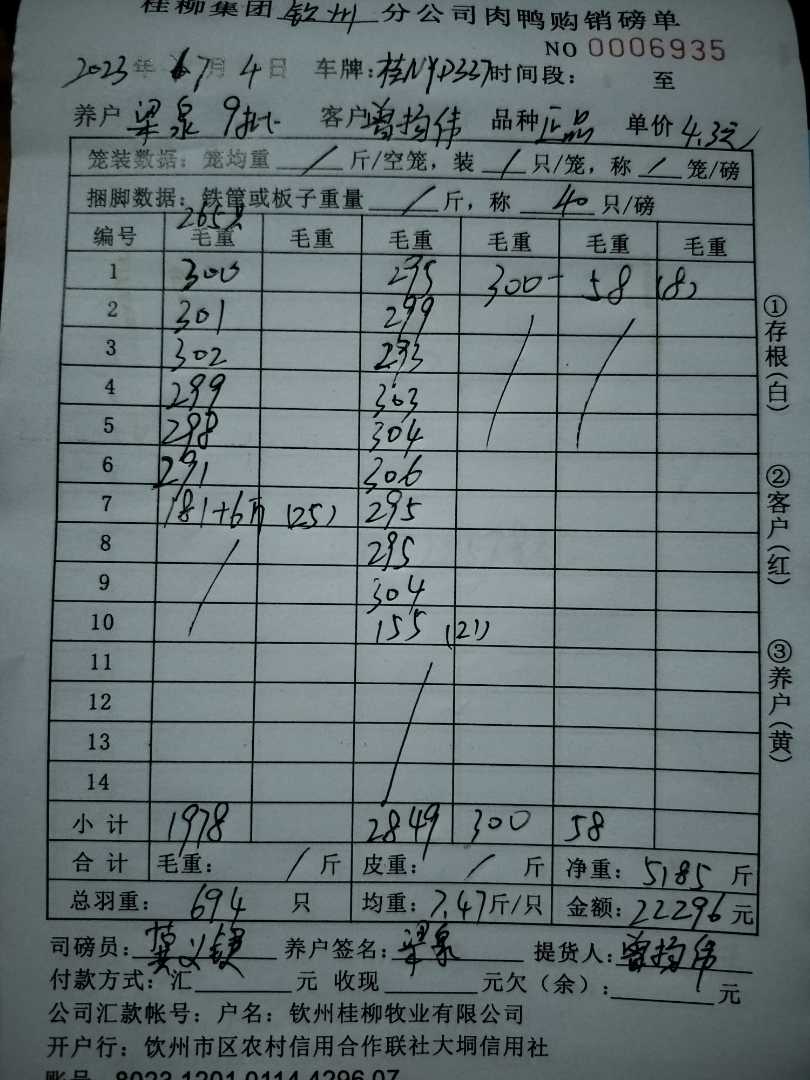 桂柳集团 钦州 分公司肉鸭购销磅单
NO 0006935
2023 年 7 月 4 日 车牌:桂NYD337 时间段: 至
养户 梁泉 9批 客户 曾扬伟 品种 正品 单价 4.3元
笼装数据:笼均重 / 斤/空笼,装 / 只/笼,称 / 笼/磅
捆脚数据:铁筐或板子重量 / 斤,称 40 只/磅
265只
编号 毛重 毛重 毛重 毛重 毛重 毛重
1 300 295 300- 58 (8)
2 301 299 / /
3 302 293
4 299 303
5 298 304
6 291 306
7 181+6 (25) 295
8 / 295
9 304
10 155 (21)
11 /
12
13
14
小计 1978 2849 300 58
合计 毛重: / 斤 皮重: / 斤 净重: 5185 斤
总羽重: 694 只 均重: 7.47斤/只 金额: 22296 元
司磅员: 莫义 养户签名: 梁泉 提货人: 曾扬伟
付款方式:汇 元 收现 元欠(余): 元
公司汇款帐号:户名:钦州桂柳牧业有限公司
开户行:钦州市区农村信用合作联社大垌信用社
账号 8023 1201 0114 4296 07
①存根(白)
②客户(红)
③养户(黄)